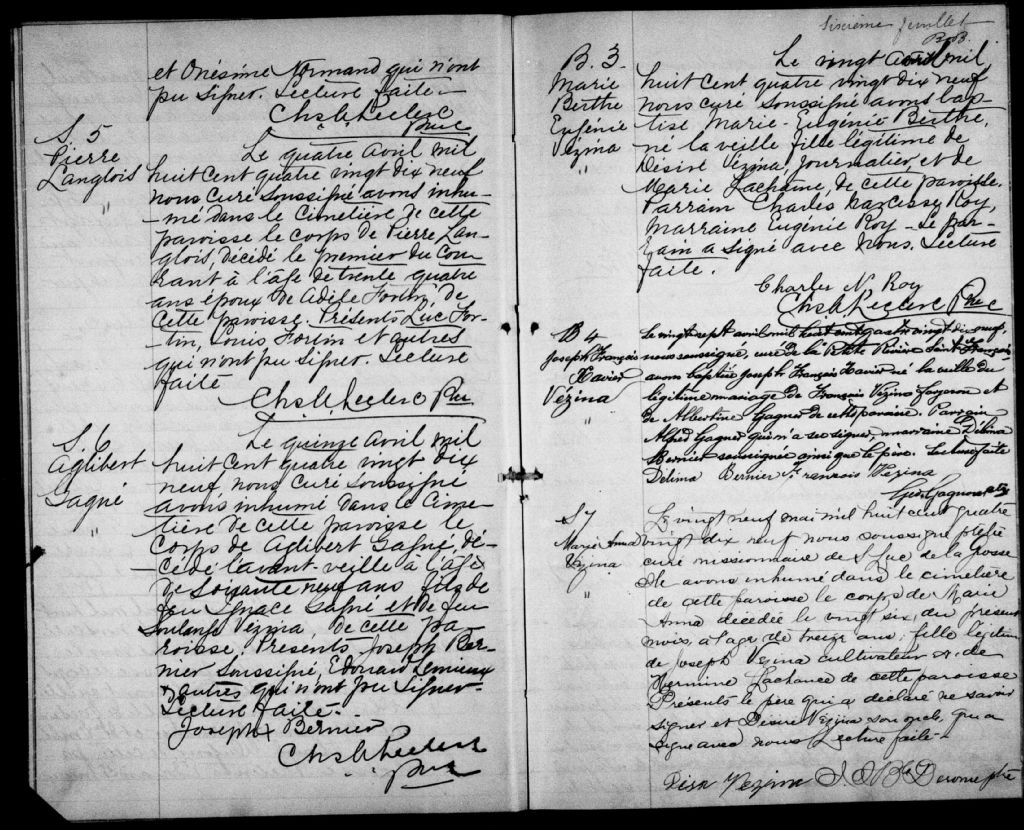 et Onésime Normand qui n'ont
pu signer. Lecture faite.
Chs. A. Leclerc
Ptre
S. 5
Pierre
Langlois
"
Le quatre avril mil
huit cent quatre vingt dix neuf
nous curé soussigné avons inhu-
-mé dans le cimetière de cette
paroisse le corps de Pierre Lan-
glois, décédé le premier du cou-
rant à l'âge de trente quatre
ans époux de Adèle Fortin, de
cette paroisse. Présents Luc For-
-tin, Louis Fortin et autres
qui n'ont pu signer. Lecture
faite
Chs. A. Leclerc Ptre
S. 6
Aglibert
Gagné
"
Le quinze avril mil
huit cent quatre vingt dix
neuf nous curé soussigné
avons inhumé dans le cime-
tière de cette paroisse le
corps de Aglibert Gagné, dé-
-cédé l'avant-veille à l'âge
de soixante neuf ans fils de
feu Ignace Gagné et de feu
Soulange Vézina, de cette pa-
roisse. Présents Joseph Ber-
-nier soussigné, Edouard Lemieux
& autres qui n'ont pu signer.
Lecture faite.
Joseph x Bernier
Chs. A. Leclerc
Ptre
Sixième feuillet
B.B.
B. 3.
Marie
Berthe
Eugénie
Vézina
Le vingt avril mil
huit cent quatre vingt dix neuf
nous curé soussigné avons bap-
-tisé Marie-Eugénie Berthe,
né la veille fille légitime de
Désiré Vézina, journalier, et de
Marie Lachaine, de cette paroisse.
Parrain Charles Narcesse Roy,
Marraine Eugénie Roy - Le Par-
rain a signé avec nous. Lecture
faite.
Charles N. Roy
Chs. A. Leclerc Ptre
B 4
Joseph François
Xavier
Vézina
Le vingt sept avril mil huit cent quatre vingt dix neuf,
nous soussigné, curé de la Petite Rivière Saint François
avons baptisé Joseph François Xavier né la veille du
légitime mariage de François Vézina forgeron et
de Albertine Gagner de cette paroisse. Parrain
Alfred Gagner qui n'a su signer, marraine Délima
Bernier soussignée ainsi que le père. Lecture faite
Délima Bernier François Vezina
Gagnon, ptre
S 7
Marie Anna
Vézina
"
Le vingt neuf mai mil huit cent quatre
vingt dix neuf nous soussigné prêtre
curé missionnaire de St Luc de la Grosse
Ile avons inhumé dans le cimetière
de cette paroisse le corps de Marie
Anna décédée le vingt six du présent
mois, à l'age de treize ans; fille légitime
de Joseph Vézina cultivateur et de
Hermine Lachance de cette paroisse
Présents le père qui a déclaré ne savoir
signer et Désiré Vézina son oncle, qui a
signé avec nous Lecture faite -
Vezina Derome ptre